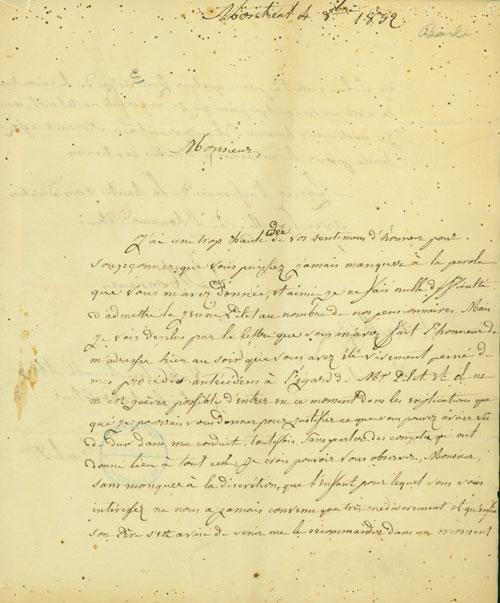 Montréal 4 8bre 1832
Monsieur,
J'ai une trop haute idée de vos sentimens d'honneur pour
soupçonner que vous puissiez jamais manquer à la parole
que vous m'avez donnée, et ainsi je ne fais nulle difficulté
d'admettre le jeune au nombre de nos pensionnaires. Mais
je vois de plus par la lettre que vous m'avez fait l'honneur de
m'adresser hier au soir que vous avez été vivement peiné de
mes procédés antécédens à l'égard de Mr. Il ne
m'est guères possible d'entrer en ce moment dans les explications que
que je pourrais vous donner pour justifier ce que vous pouvez avoir vu
de dur dans ma conduite. Toutefois, sans parler des comptes qui ont
donné lieu à tout cela, je crois pouvoir vous observer, Monsieur,
sans manquer à la discrétion, que l'enfant pour lequel vous vous
intéressez ne nous a jamais convenu que très médiocrement et qu'enfin
son Père s'est avisé de venir me le recommander dans un moment